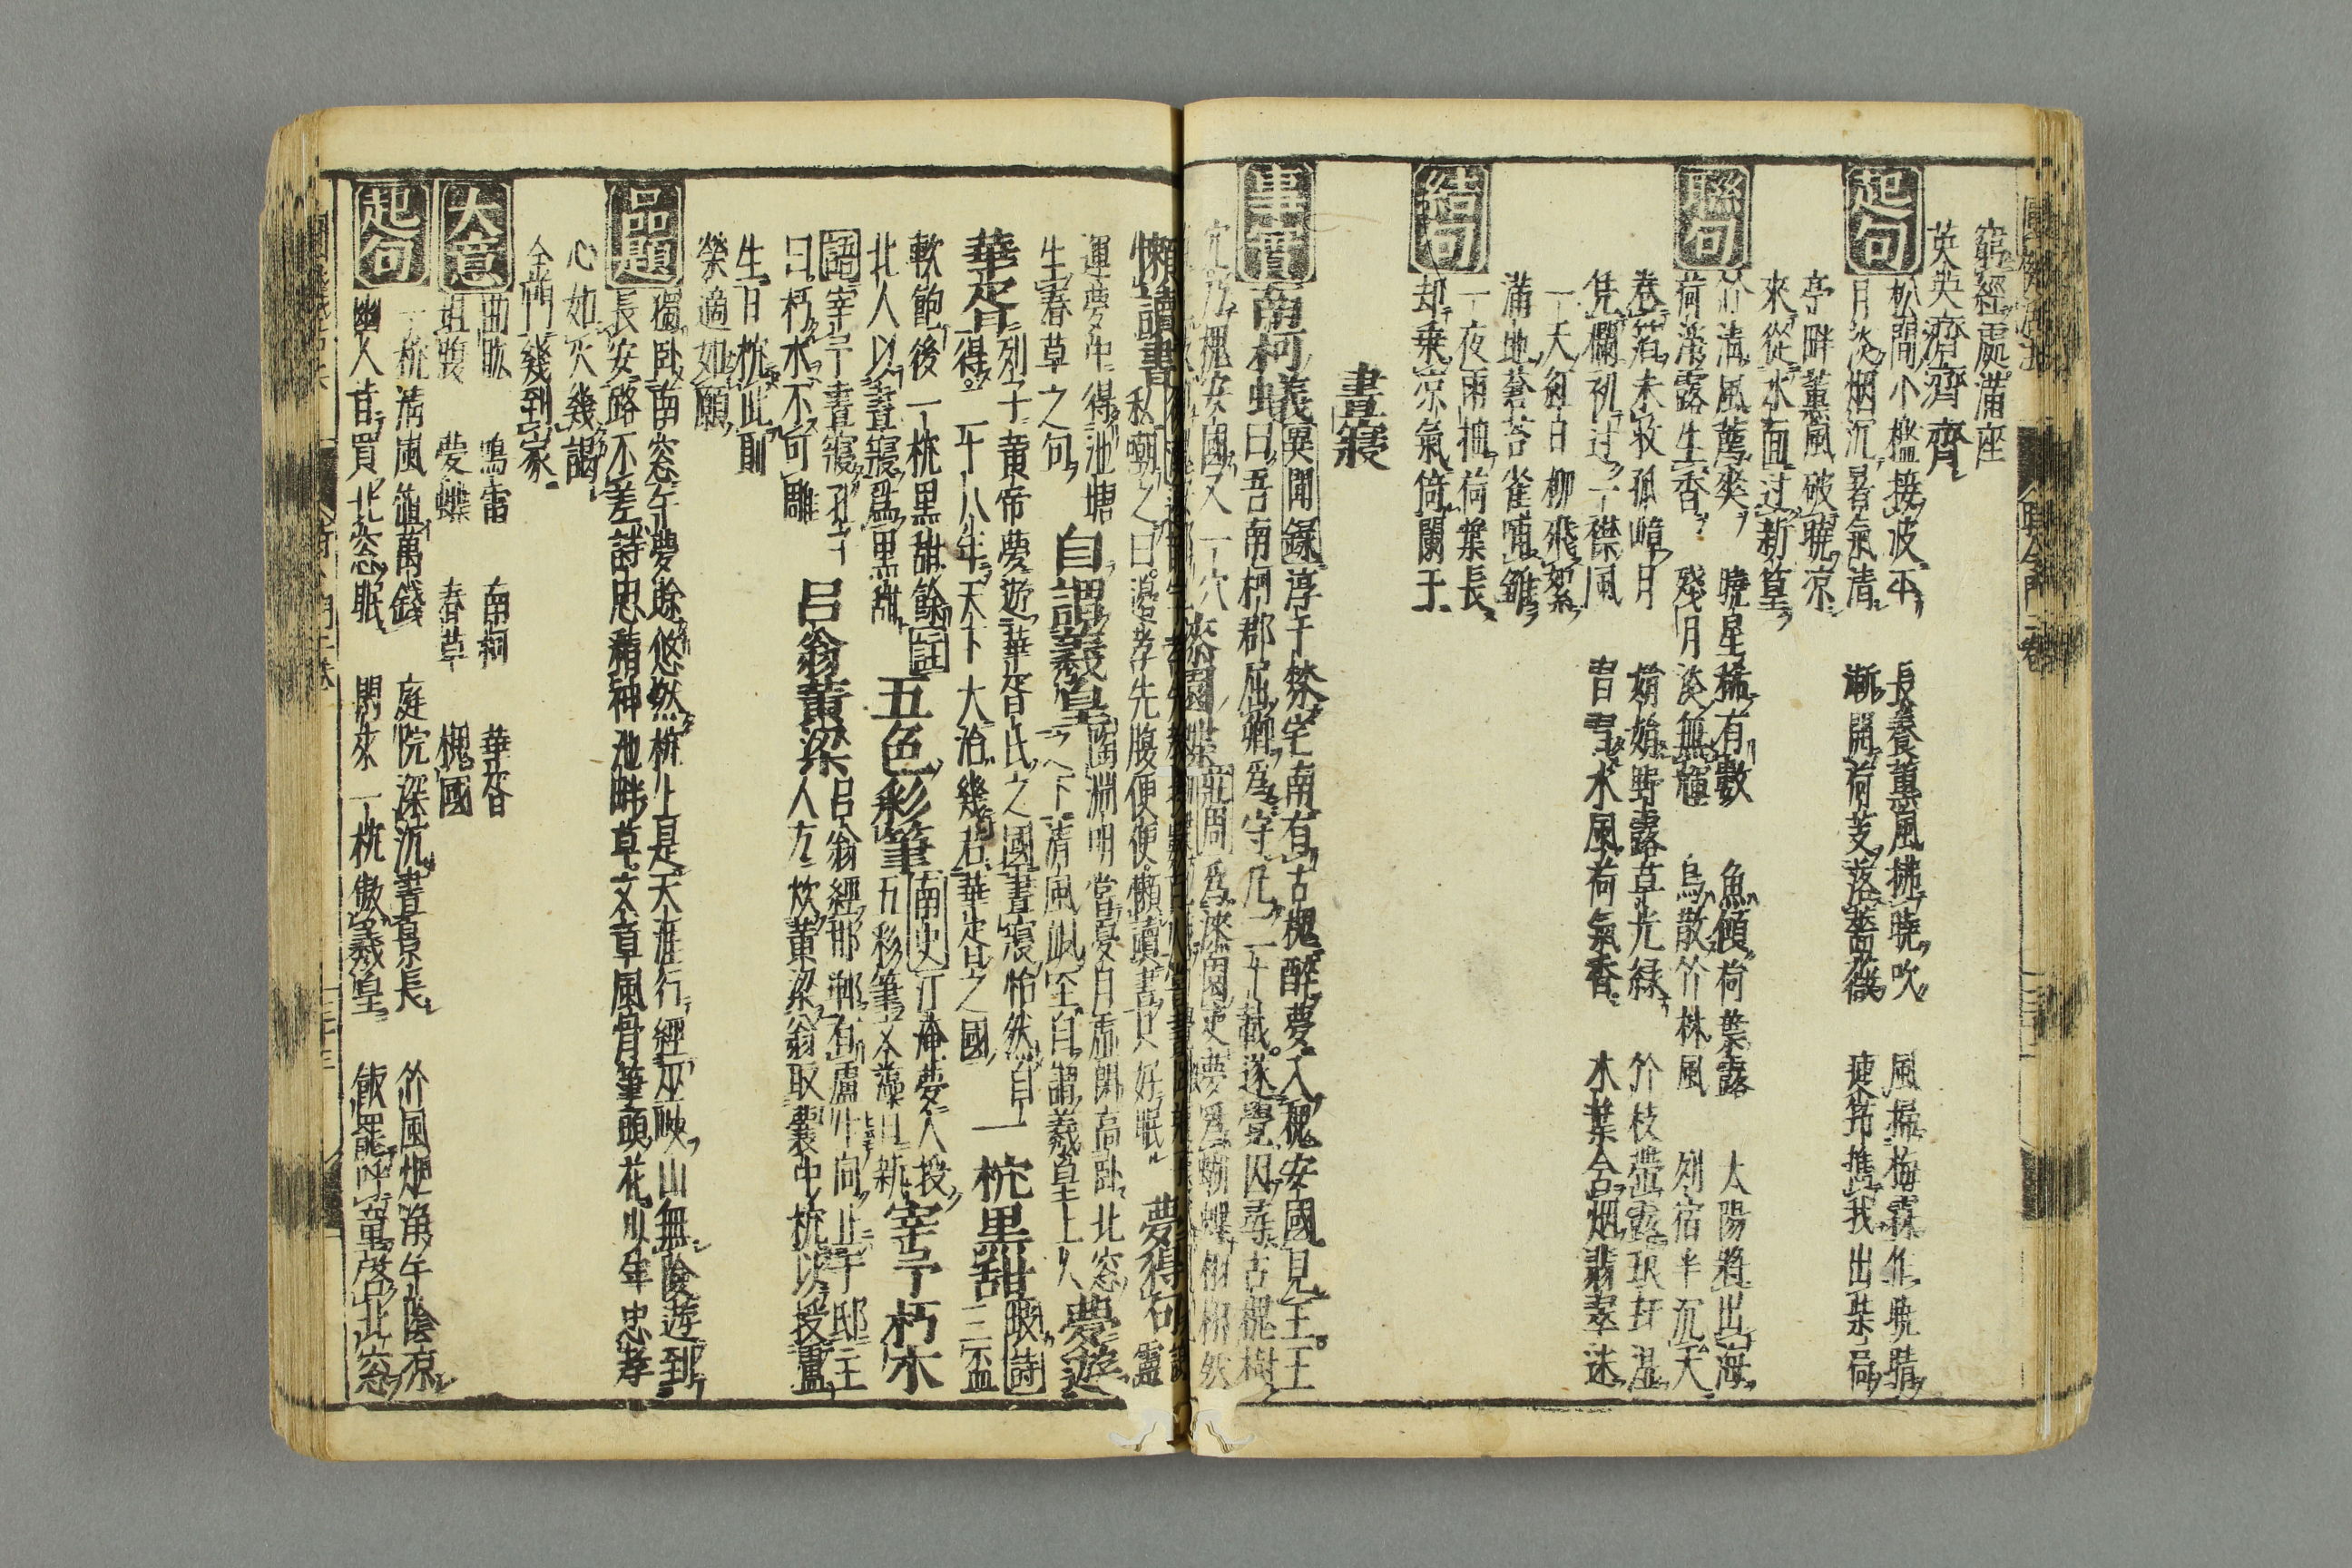 窮經處滿座
英英濟濟齊
起句
松間小檻接波平 長養薫風拂曉吹 風掃梅霖作曉晴
月淡烟沉暑氣清 漸開荷芰落薔薇 瘦筇携我出柴扃
亭畔薫風破曉凉
來從水面过新篁
聯句
竹清風薦爽 曉星稀有數 魚傾荷葉露 太陽將出海
荷淨露生香 殘月淡無輝 鳥散竹林風 列宿半沉天
卷箔未收孤嶂月 野露草光緑 竹枝帶露琅玕湿
凭欄初过一襟風 水風荷氣香 木葉含烟翡翠迷
一天紅日柳飛絮
滿地蒼苔雀哺雛
一夜雨抽荷葉長
結句
却乘凉氣倚闌干
晝寢
事實
南柯蟻 異聞録 淳于棼宅南有古槐醉夢入槐安國見王王
曰吾南柯郡屈卿爲守凡二十載遂覺因尋古槐樹
穴乃槐安國又一穴 漆園蝶 莊周爲漆園吏夢爲蝴蝶栩栩然
懶讀書 私嘲之曰邊孝先腹便便懶讀書只好眠 夢得句 靈
運夢中得池塘 自謂羲皇 陶淵明當夏月虛閑高臥北窓
生春草之句 之下清風颯至自謂羲皇上人 夢遊
華胥 列子黄帝夢遊華胥氏之國晝寢怡然自 一枕黑甜 坡詩
得二十八年天下大治幾若華胥之國 三盃
軟飽後一枕黑甜餘註 五色彩筆 南史江淹夢人授
北人以晝寢爲黑甜 五彩筆文藻日新 宰予朽木
語宰予晝寢孔子 呂翁黄粱 呂翁經邯鄲道盧生向止于邸主
曰朽木不可雕 人方炊黄粱翁取囊中枕以授盧
生曰枕此則
榮適如願
品題
獨臥南窓午夢賒悠然枕上是天涯行經巫峽山無險遊到
長安路不差詩思精神池畔草文章風骨筆頭花少年忠孝
心如火幾謁
金門幾到家
大意
曲肱 鳴雷 南柯 華胥
坦腹 夢蝶 春草 槐國
起句
一枕清風値萬錢 庭院深沉晝景長 竹風烟淨午陰凉
幽人肯買北窓眠 閑來一枕傲羲皇 飯罷呼童啓北窓